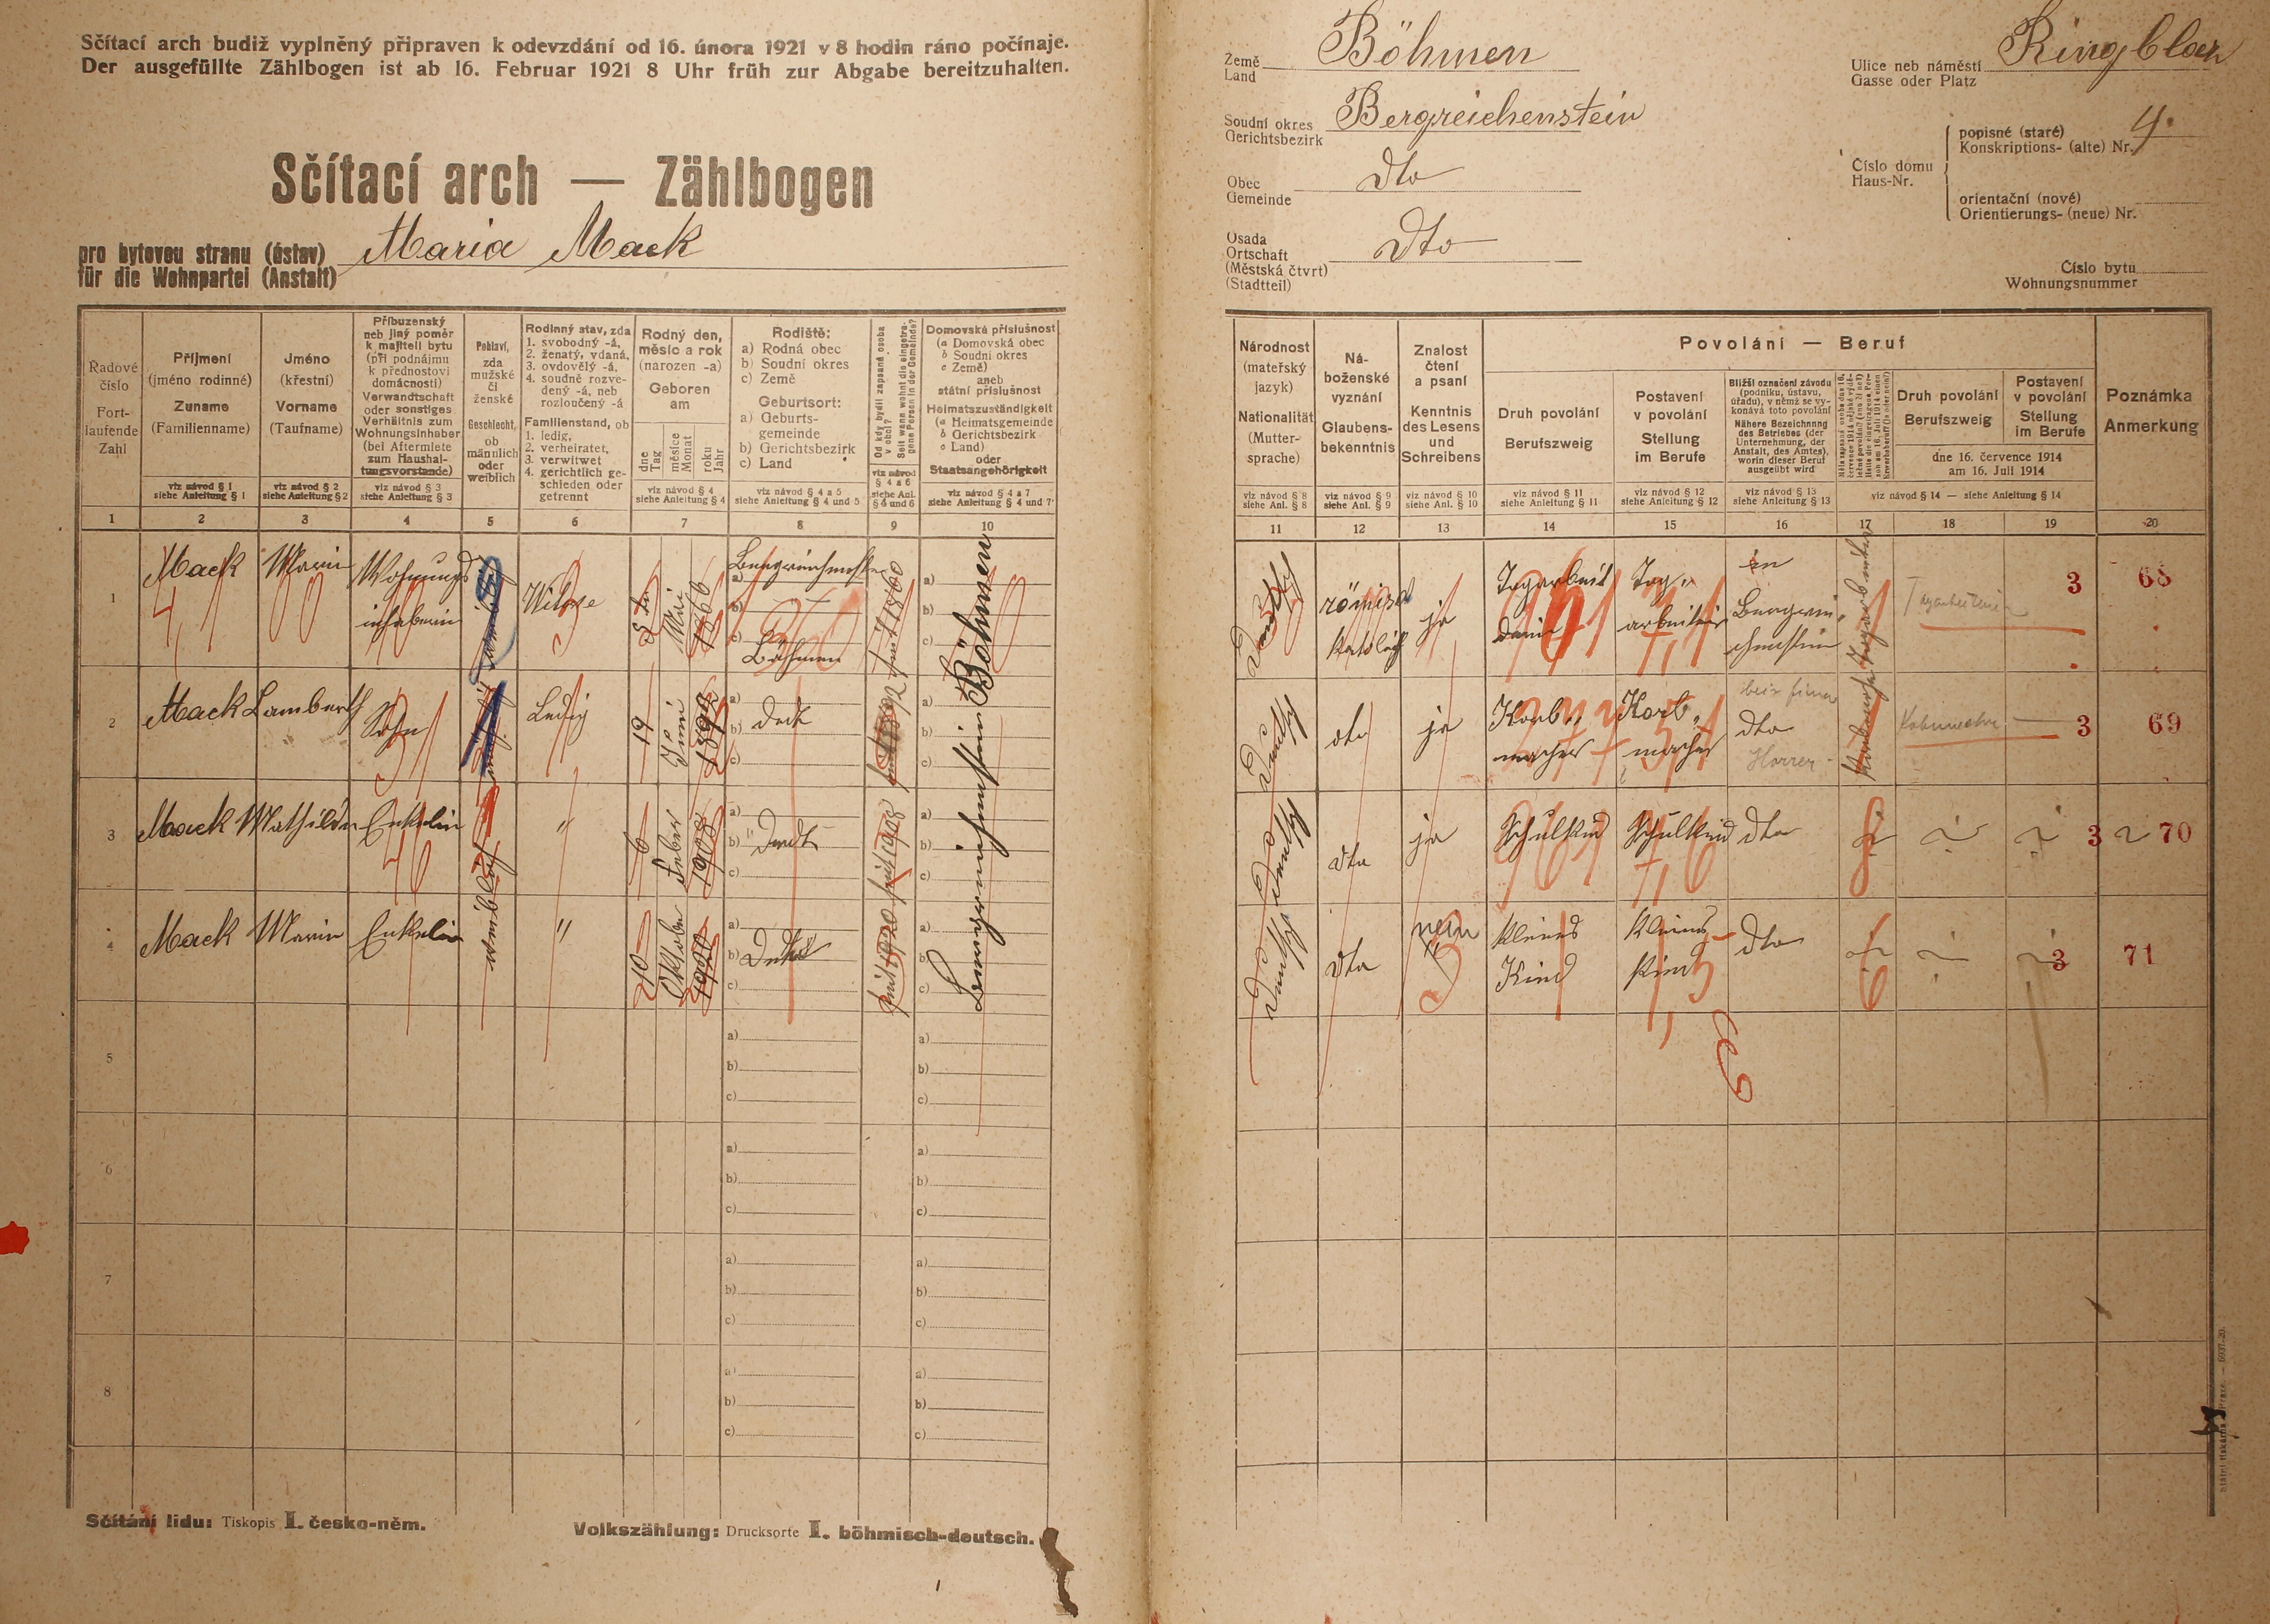 Sčítací arch budiž vyplněný připraven k odevzdání od 16. února 1921 v 8 hodin ráno počínaje.
Der ausgefüllte Zählbogen ist ab 16. Februar 1921 8 Uhr früh zur Abgabe bereitzuhalten.
Sčítací arch — Zählbogen
pro bytovou stranu (ústav)
für die Wohnpartei (Anstalt)
Maria Mack
Země
Land
Böhmen
Soudní okres
Gerichtsbezirk
Bergreichenstein
Obec
Gemeinde
dto
Osada
Ortschaft
(Městská čtvrt)
(Stadtteil)
dto
Ulice neb náměstí
Gasse oder Platz
Číslo domu
Haus-Nr.
popisné (staré)
Konskriptions- (alte) Nr.
4.
orientační (nové)
Orientierungs- (neue) Nr.
Číslo bytu
Wohnungsnummer
Řadové
číslo
Fort-
laufende
Zahl
1
Příjmení
(jméno rodinné)
Zuname
(Familienname)
viz návod § 1
siehe Anleitung § 1
2
Jméno
(křestní)
Vorname
(Taufname)
viz návod § 2
siehe Anleitung § 2
3
Příbuzenský
neb jiný poměr
k majiteli bytu
(při podnájmu
k přednostovi
domácnosti)
Verwandtschaft
oder sonstiges
Verhältnis zum
Wohnungsinhaber
(bei Aftermiete
zum Haushal-
tungsvorstande)
viz návod § 3
siehe Anleitung § 3
4
Pohlaví,
zda
mužské
či
ženské
Geschlecht,
ob
männlich
oder
weiblich
5
Rodinný stav, zda
1. svobodný -á,
2. ženatý, vdaná,
3. ovdovělý -á,
4. soudně rozve-
dený -á, neb
rozloučený -á
Familienstand, ob
1. ledig,
2. verheiratet,
3. verwitwet
4. gerichtlich ge-
schieden oder
getrennt
6
Rodný den,
měsíc a rok
(narozen -a)
Geboren
am
dne
Tag
měsíce
Monat
roku
Jahr
viz návod § 4
siehe Anleitung § 4
7
Rodiště:
a) Rodná obec
b) Soudní okres
c) Země
Geburtsort:
a) Geburts-
gemeinde
b) Gerichtsbezirk
c) Land
viz návod § 4 a 5
siehe Anleitung § 4 und 5
8
Od kdy bydlí zapsaná osoba
v obci?
Seit wann wohnt die eingetra-
gene Person in der Gemeinde?
viz návod
§ 4 a 6
siehe Anl.
§ 4 und 6
9
Domovská příslušnost
(a Domovská obec
b Soudní okres
c Země)
aneb
státní příslušnost
Heimatszuständigkeit
(a Heimatsgemeinde
b Gerichtsbezirk
c Land)
oder
Staatsangehörigkeit
viz návod § 4 a 7
siehe Anleitung § 4 und 7
10
Národnost
(mateřský
jazyk)
Nationalität
(Mutter-
sprache)
viz návod § 8
siehe Anl. § 8
11
Ná-
boženské
vyznání
Glaubens-
bekenntnis
viz návod § 9
siehe Anl. § 9
12
Znalost
čtení
a psaní
Kenntnis
des Lesens
und
Schreibens
viz návod § 10
siehe Anl. § 10
13
Povolání — Beruf
Druh povolání
Berufszweig
viz návod § 11
siehe Anleitung § 11
14
Postavení
v povolání
Stellung
im Berufe
viz návod § 12
siehe Anleitung § 12
15
Bližší označení závodu
(podniku, ústavu,
úřadu), v němž se vy-
konává toto povolání
Nähere Bezeichnung
des Betriebes (der
Unternehmung, der
Anstalt, des Amtes),
worin dieser Beruf
ausgeübt wird
viz návod § 13
siehe Anleitung § 13
16
17
Druh povolání
Berufszweig
Postavení
v povolání
Stellung
im Berufe
dne 16. července 1914
am 16. Juli 1914
viz návod § 14 — siehe Anleitung § 14
18
19
Poznámka
Anmerkung
20
1
Mack
Marie
Wohnungs
inhaberin
weiblich
Witwe
Mai
1866
Bergreichenstein
Böhmen
Bergreichenstein Böhmen
deutsch
römisch
katholisch
ja
Tag„
arbeiterin
in
Bergrei„
chenstein
Tagarbeiterin
3
68
2
Mack
Lamberth
Sohn
männlich
Ledig
19
Juni
1892
dto
deutsch
dto
ja
Korb„
macher
Korb„
macher
bei Firma
dto
3
69
3
Mack
Mathilde
Enkelin
weiblich
"
6
Feber
1908
seit 1908
deutsch
dto
ja
Schulkind
Schulkind
dto
3
70
4
Mack
Marie
Enkelin
"
10
Oktober
1920
seit 1920
deutsch
dto
nein
Kleines
Kind
Kleines
Kind
dto
3
71
5
6
7
8
Sčítání lidu: Tiskopis I. česko-něm.
Volkszählung: Drucksorte I. böhmisch-deutsch.